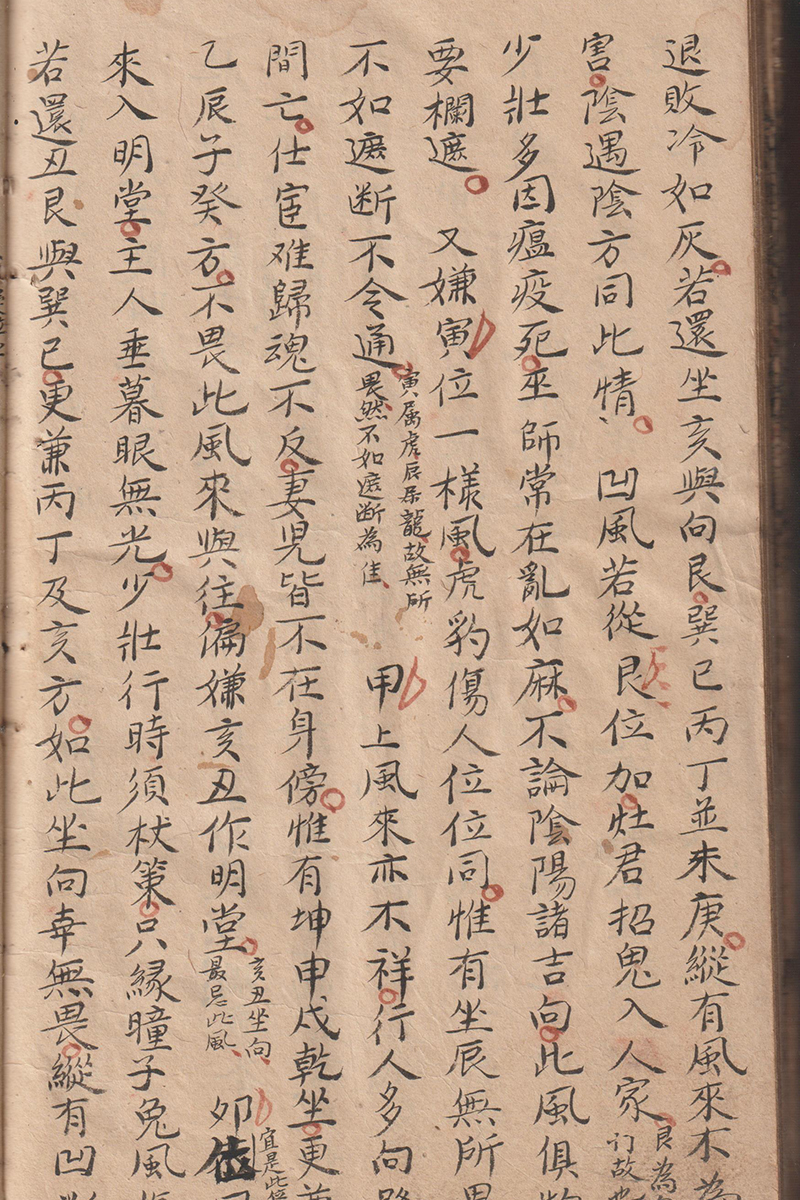 退敗冷如灰若還坐亥與向艮巽巳丙丁並未庚縱有風來不為
害陰遇陰方同此情 凹風若從艮位加灶君招鬼入人家艮為
少壯多因瘟疫死巫師常在亂如麻不論陰陽諸吉向此風俱
要欄遮 又嫌寅位一樣風虎豹傷人位位同惟有坐辰無所畏
不如遮断不令通寅属虎辰属龍故無所畏然不如遮断為佳 甲上風來亦不祥行人多向路
間亡仕宦难歸魂不反妻児皆不在身傍惟有坤申戌乾坐更
乙辰子癸方不畏此風來與往偏嫌亥丑作明堂亥丑坐向最忌此風 夘位
來入明堂主人垂暮眼無光少壯行時須杖策只緣瞳子兔風
若還丑艮與巽巳更兼丙丁及亥方如此坐向幸無畏縱有凹